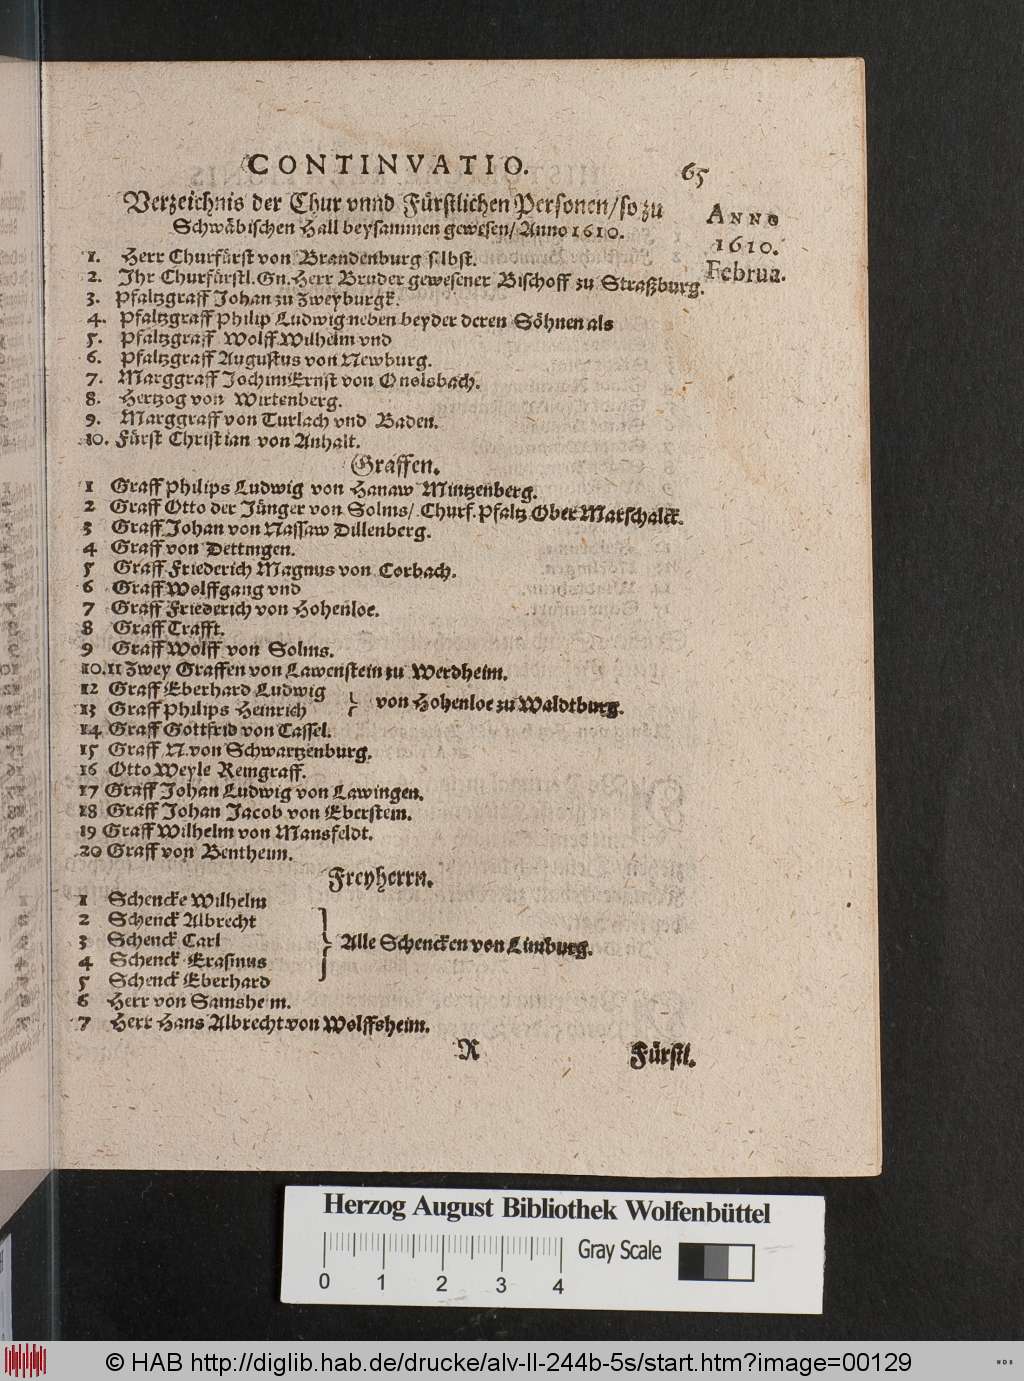 CONTINVATIO.
65
Verzeichnis der Chur vnnd Fürstlichen Personen/so zu
Schwäbischen Hall beysammen gewesen/ Anno 1610.
ANNO
1610.
Februa.
1. Herr Churfürst von Brandenburg selbst.
2. Ihr Churfürstl. Gn. Herr Bruder gewesener Bischoff zu Straßburg.
3. Pfaltzgraff Johan zu Zweyburgk.
4. Pfaltzgraff Philip Ludwig neben beyder deren Söhnen als
5. Pfaltzgraff Wolff Wilhelm vnd
6. Pfaltzgraff Augustus von Newburg.
7. Marggraff Jochim Ernst von Onolsbach.
8. Hertzog von Wirtenberg.
9. Marggraff von Turlach vnd Baden.
10. Fürst Christian von Anhalt.
Graffen.
1 Graff Philips Ludwig von Hanaw Mintzenberg.
2 Graff Otto der Jünger von Solms/ Churf. Pfaltz Ober Marschalck.
3 Graff Johan von Nassaw Dillenberg.
4 Graff von Dettingen.
5 Graff Friederich Magnus von Corbach.
6 Graff Wolffgang vnd
7 Graff Friederich von Hohenloe.
8 Graff Crafft.
9 Graff Wolff von Solms.
10.11 Zwey Graffen von Lawenstein zu Werdheim.
12 Graff Eberhard Ludwig
13 Graff Philips Heinrich
} von Hohenloe zu Waldtburg.
14 Graff Gottfrid von Cassel.
15 Graff N. von Schwartzenburg.
16 Otto Weyle Reingraff.
17 Graff Johan Ludwig von Lawingen.
18 Graff Johan Jacob von Eberstein.
19 Graff Wilhelm von Mansfeldt.
20 Graff von Bentheim.
Freyherrn.
1 Schencke Wilhelm
2 Schenck Albrecht
3 Schenck Carl
4 Schenck Erasmus
5 Schenck Eberhard
} Alle Schencken von Limburg.
6 Herr von Sainsheim.
7 Herr Hans Albrecht von Wolffsheim.
R
Fürstl.
Herzog August Bibliothek Wolfenbüttel
Gray Scale
0 1 2 3 4
© HAB http://diglib.hab.de/drucke/alv-ll-244b-5s/start.htm?image=00129